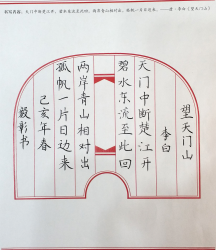 天门中断楚江开，碧水东流至此回。两岸青山相对出，孤帆一片日边来。——唐·李白《望天门山》
望天门山
李白
天门中断楚江开
碧水东流至此回
两岸青山相对出
孤帆一片日边来
己亥年春
毅彰书